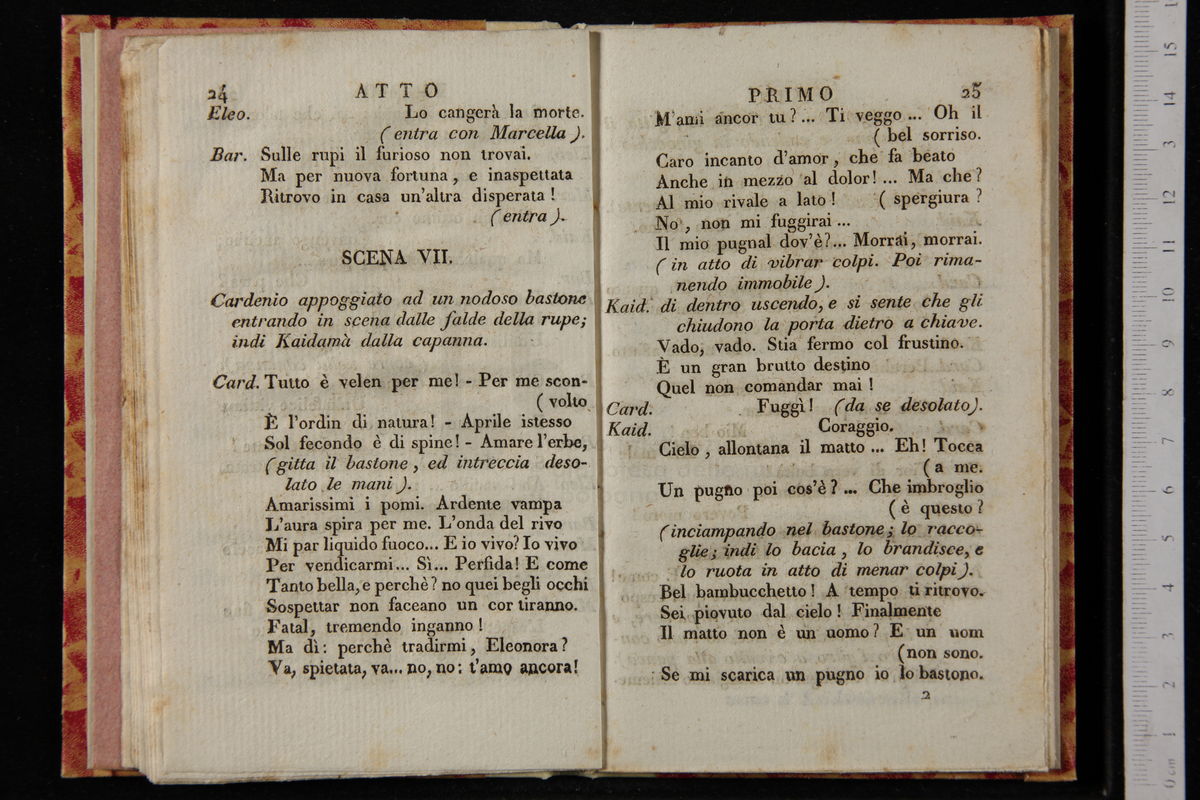 24 ATTO
Eleo. Lo cangerà la morte.
(entra con Marcella).
Bar. Sulle rupi il furioso non trovai.
Ma per nuova fortuna, e inaspettata
Ritrovo in casa un'altra disperata!
(entra).
SCENA VII.
Cardenio appoggiato ad un nodoso bastone
entrando in scena dalle falde della rupe;
indi Kaidamà dalla capanna.
Card. Tutto è velen per me! - Per me scon-
(volto
È l'ordin di natura! - Aprile istesso
Sol fecondo è di spine! - Amare l'erbe,
(gitta il bastone, ed intreccia deso-
lato le mani).
Amarissimi i pomi. Ardente vampa
L'aura spira per me. L'onda del rivo
Mi par liquido fuoco... E io vivo? Io vivo
Per vendicarmi... Sì... Perfida! E come
Tanto bella, e perchè? no quei begli occhi
Sospettar non faceano un cor tiranno.
Fatal, tremendo inganno!
Ma dì: perchè tradirmi, Eleonora?
Va, spietata, va... no, no: t'amo ancora!
PRIMO 25
M'ami ancor tu?... Ti veggo... Oh il
(bel sorriso.
Caro incanto d'amor, che fa beato
Anche in mezzo al dolor!... Ma che?
Al mio rivale a lato! (spergiura?
No, non mi fuggirai...
Il mio pugnal dov'è?... Morrai, morrai.
(in atto di vibrar colpi. Poi rima-
nendo immobile).
Kaid. di dentro uscendo, e si sente che gli
chiudono la porta dietro a chiave.
Vado, vado. Stia fermo col frustino.
È un gran brutto destino
Quel non comandar mai!
Card. Fuggì! (da se desolato).
Kaid. Coraggio.
Cielo, allontana il matto... Eh! Tocca
(a me.
Un pugno poi cos'è?... Che imbroglio
(è questo?
(inciampando nel bastone; lo racco-
glie; indi lo bacia, lo brandisce, e
lo ruota in atto di menar colpi).
Bel bambucchetto! A tempo ti ritrovo.
Sei piovuto dal cielo! Finalmente
Il matto non è un uomo? E un uom
(non sono.
Se mi scarica un pugno io lo bastono.
2
0 cm 1 2 3 4 5 6 7 8 9 10 11 12 13 14 15